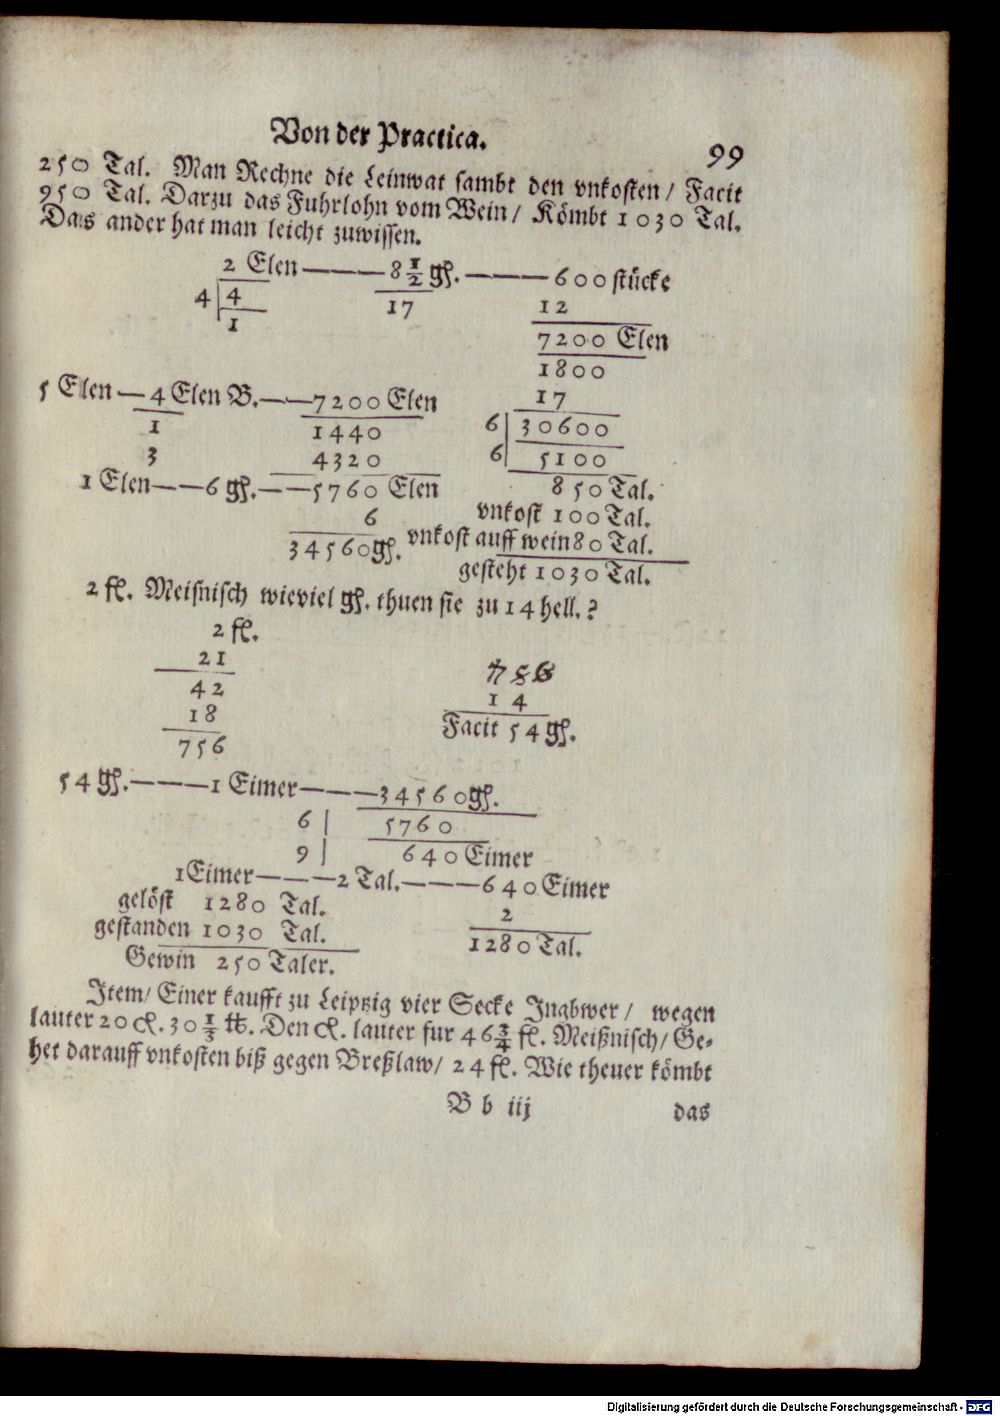 Von der Practica. 99
250 Tal. Man Rechne die Leinwat sambt den vnkosten / Facit
950 Tal. Darzu das Fuhrlohn vom Wein / Kömbt 1030 Tal.
Das ander hat man leicht zuwissen.
2 Elen — 8 1/2 gß. — 600 stücke
4 | 4 17 12
1 7200 Elen
1800
5 Elen — 4 Elen B. — 7200 Elen 17
1 1440 6 | 30600
3 4320 6 | 5100
1 Elen — 6 gß. — 5760 Elen 850 Tal.
6 vnkost 100 Tal.
34560 gß. vnkost auff wein 80 Tal.
gesteht 1030 Tal.
2 fl. Meisnisch wieviel gß. thuen sie zu 14 hell.?
2 fl.
21 756
42 14
18 Facit 54 gß.
756
54 gß. — 1 Eimer — 34560 gß.
6 | 5760
9 | 640 Eimer
1 Eimer — 2 Tal. — 640 Eimer
gelöst 1280 Tal. 2
gestanden 1030 Tal. 1280 Tal.
Gewin 250 Taler.
Item / Einer kaufft zu Leiptzig vier Secke Ingbwer / wegen
lauter 20 cl. 30 1/3 tt. Den cl. lauter fur 46 3/4 fl. Meißnisch / Ge-
het darauff vnkosten biß gegen Breßlaw / 24 fl. Wie theuer kömbt
B b iij das
Digitalisierung gefördert durch die Deutsche Forschungsgemeinschaft - DFG